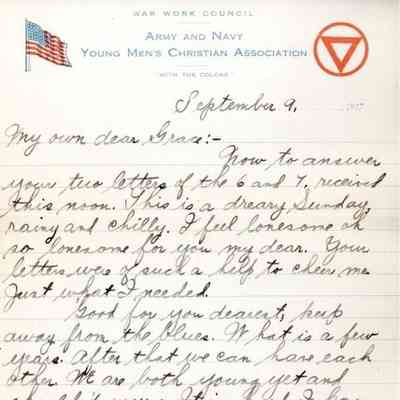 WAR WORK COUNCIL
ARMY AND NAVY
YOUNG MEN'S CHRISTIAN ASSOCIATION
"WITH THE COLORS"
September 9, 1917
My own dear Grace:-
Now to answer
your two letters of the 6 and 7, received
this noon. This is a dreary Sunday,
rainy and chilly. I feel lonesome oh
so lonesome for you my dear. Your
letters were of such a help to cheer me
Just what I needed.
Good for you dearest, keep
away from the blues. What is a few
years. After that we can have each
other. We are both young yet and